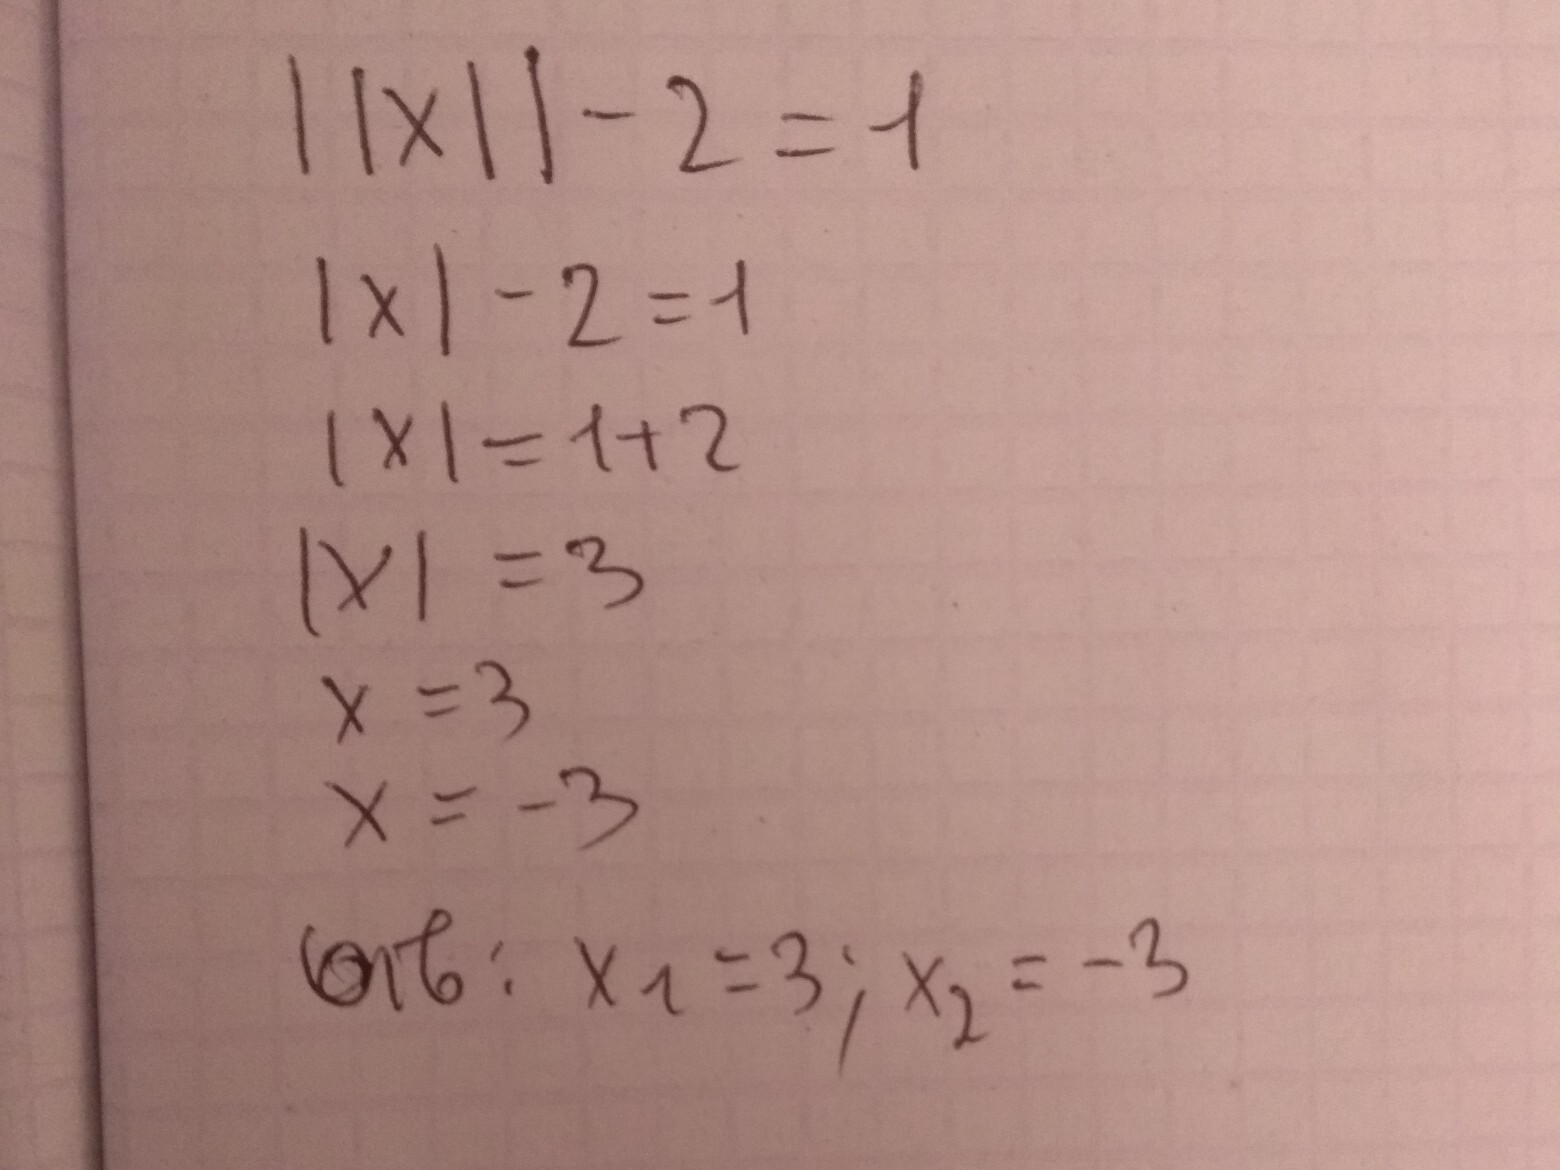 ||x|| - 2 = 1
|x| - 2 = 1
|x| = 1 + 2
|x| = 3
x = 3
x = -3
отв: x₁ = 3; x₂ = -3